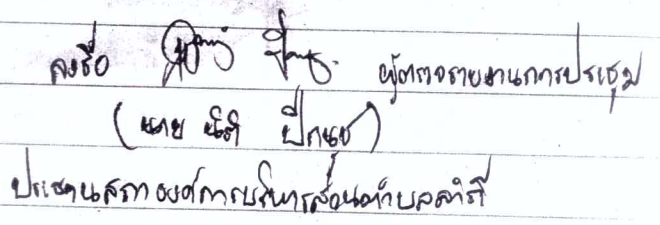 ลงชื่อ ผู้ตรวจรายงานการประชุม
(นาย นิติ ปีกนช)
ประธานสภาองค์การบริหารส่วนตำบลลำภี